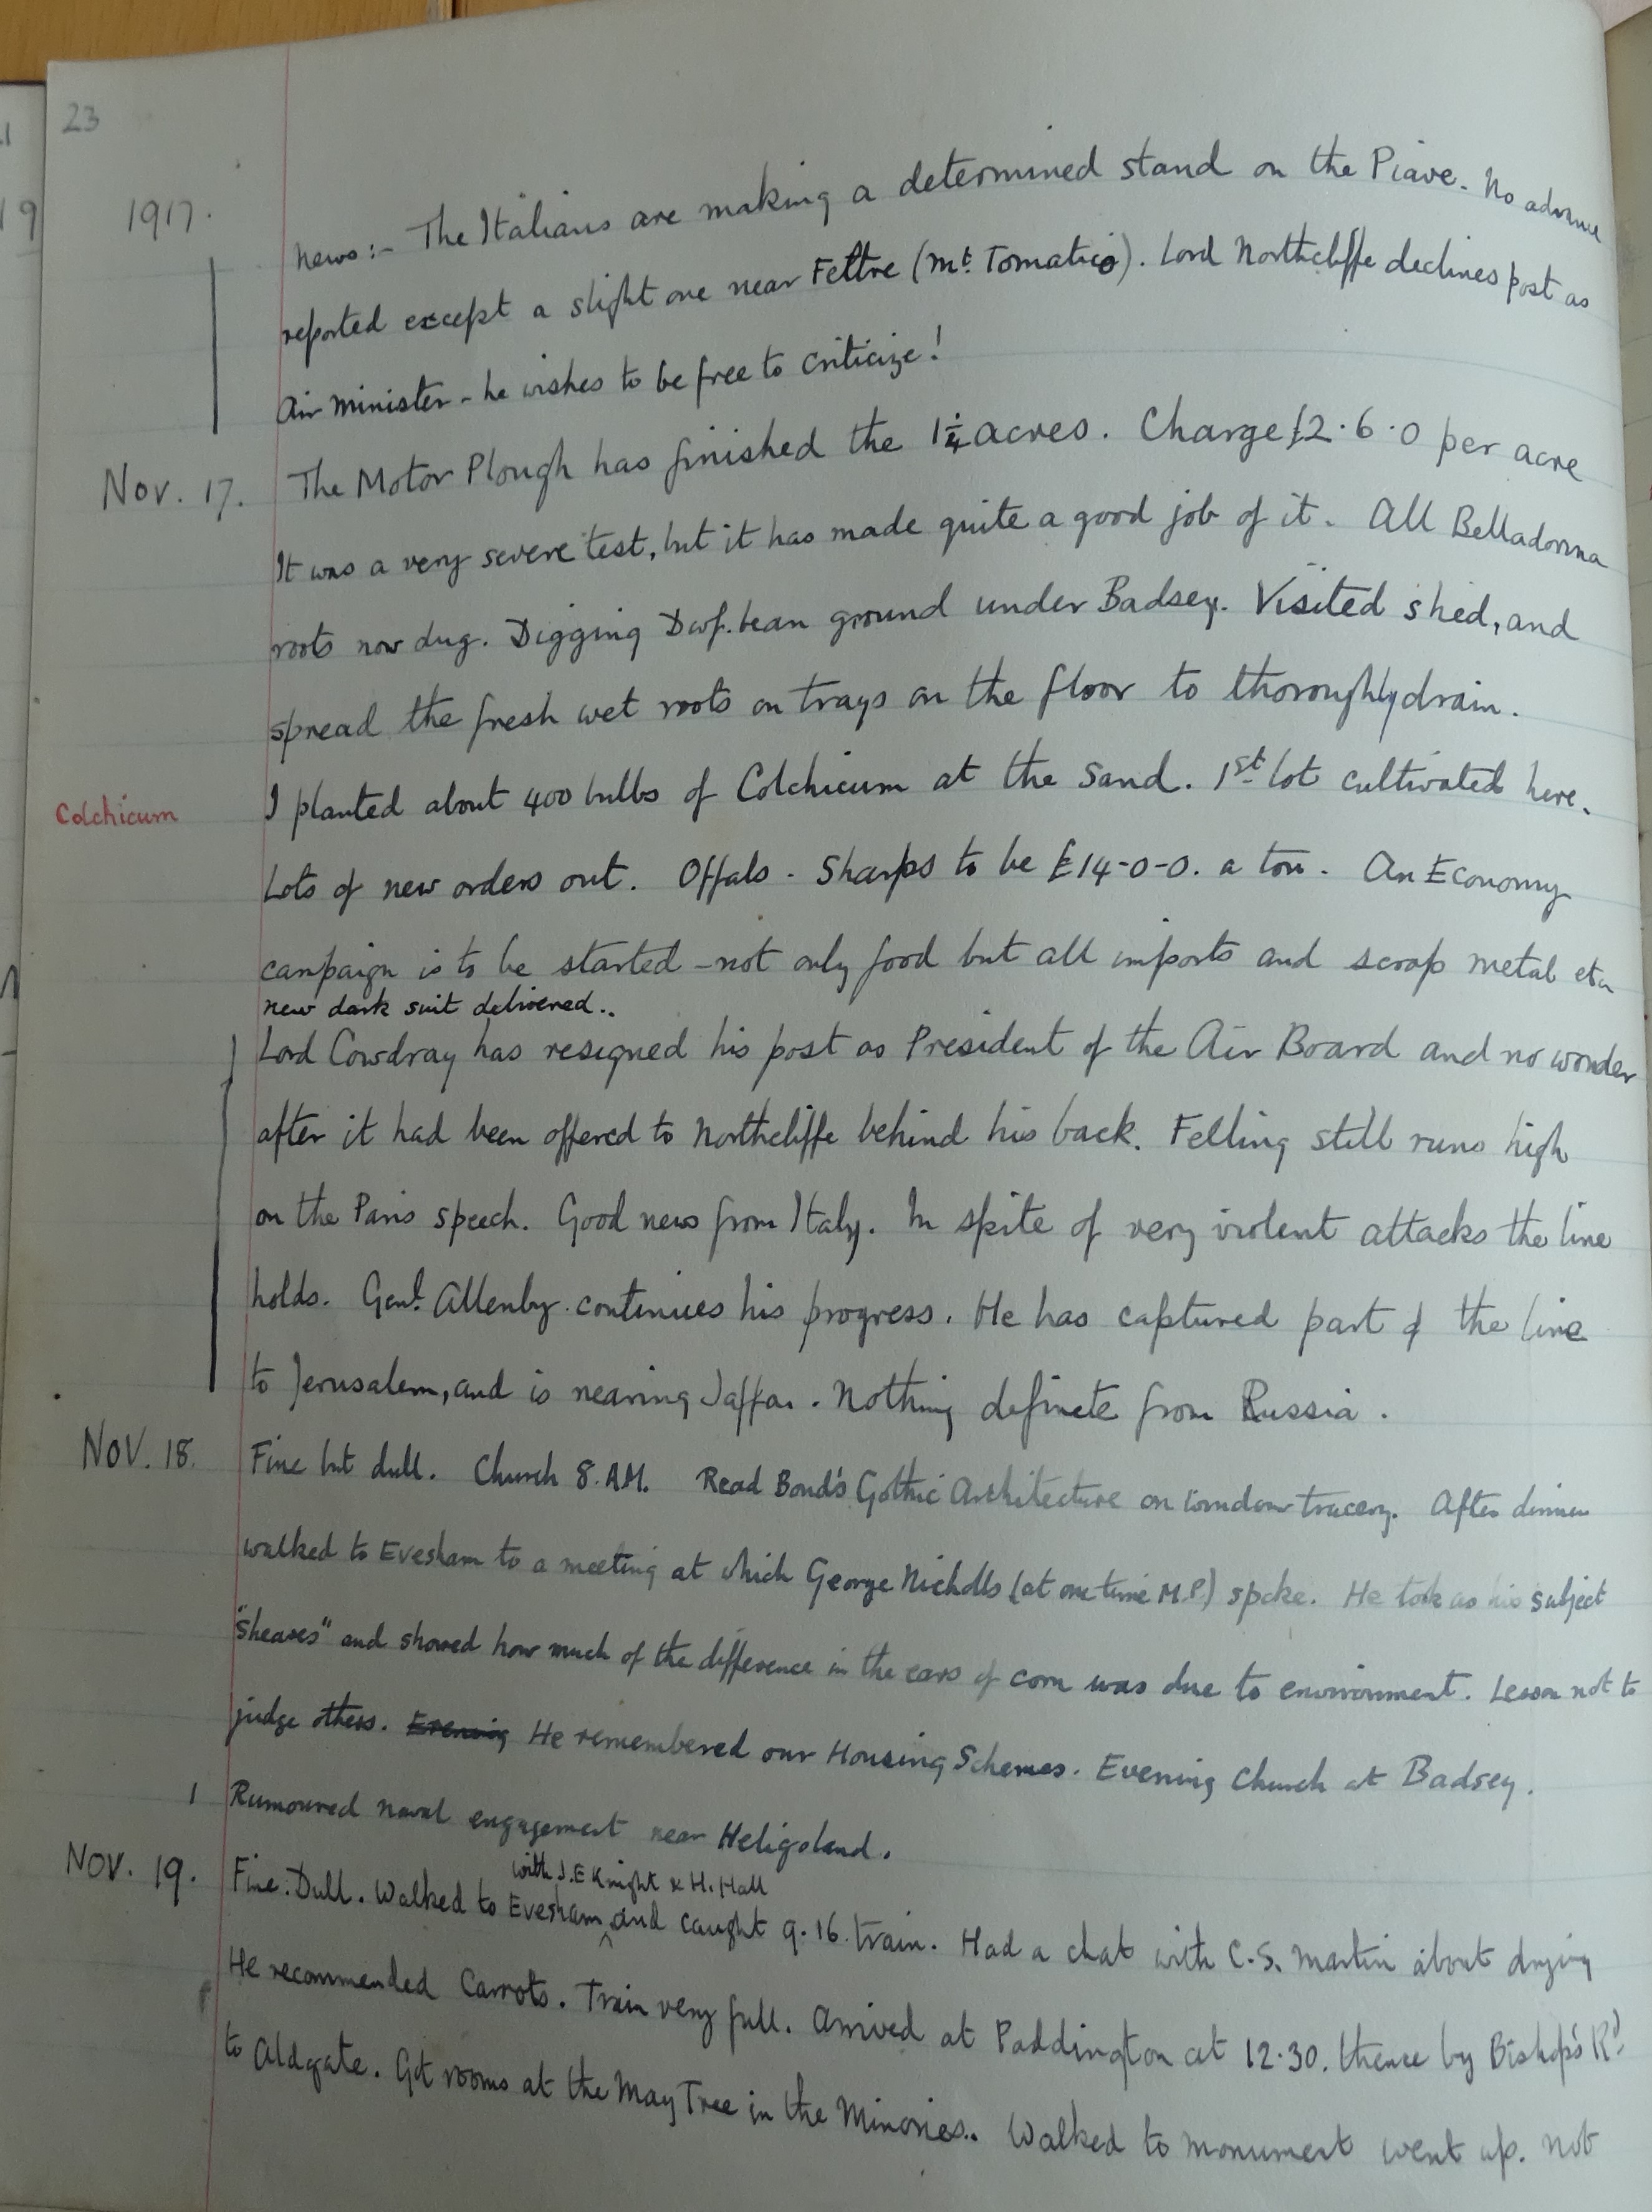 23
1917.
News:- The Italians are making a determined stand on the Piave. No advance
reported except a slight one near Feltre (Mt. Tomatico). Lord Northcliffe declines post as
Air Minister - he wishes to be free to criticize!
Nov. 17. The Motor Plough has finished the 1¼ acres. Charge £2.6.0 per acre
It was a very severe test, but it has made quite a good job of it. All Belladonna
roots now dug. Digging Dwf. bean ground under Badsey. Visited shed, and
spread the fresh wet roots on trays on the floor to thoroughly drain.
Colchicum I planted about 400 bulbs of Colchicum at the Sand. 1st lot cultivated here.
Lots of new orders out. Offals - Sharps to be £14-0-0. a ton. An Economy
campaign is to be started - not only food but all imports and scrap metal etc
new dark suit delivered..
Lord Cowdray has resigned his post as President of the Air Board and no wonder
after it had been offered to Northcliffe behind his back. Felling still runs high
on the Paris speech. Good news from Italy. In spite of very violent attacks the line
holds. Genl. Allenby continues his progress. He has captured part of the line
to Jerusalem, and is nearing Jaffa. Nothing definete from Russia.
Nov. 18. Fine but dull. Church 8. A.M. Read Bond's Gothic Architecture on window tracery. After dinner
walked to Evesham to a meeting at which George Nicholls (at one time M.P.) spoke. He took as his subject
"sheaves" and showed how much of the difference in the ears of corn was due to environment. Lesson not to
judge others. Evening He remembered our Housing Schemes. Evening Church at Badsey.
Rumoured naval engagement near Heligoland.
with J.E Knight & H. Hall
Nov. 19. Fine. Dull. Walked to Evesham and caught 9.16 train. Had a chat with C.S. Martin about drying
He recommended Carrots. Train very full. Arrived at Paddington at 12.30. thence by Bishop's Rd
to Aldgate. Got rooms at the May Tree in the Minories.. Walked to monument went up. Not